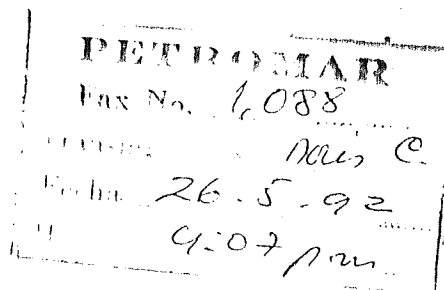 PETROMAR
Fax No. 1,088
C.
Fecha 26.5.92
4:07 pm